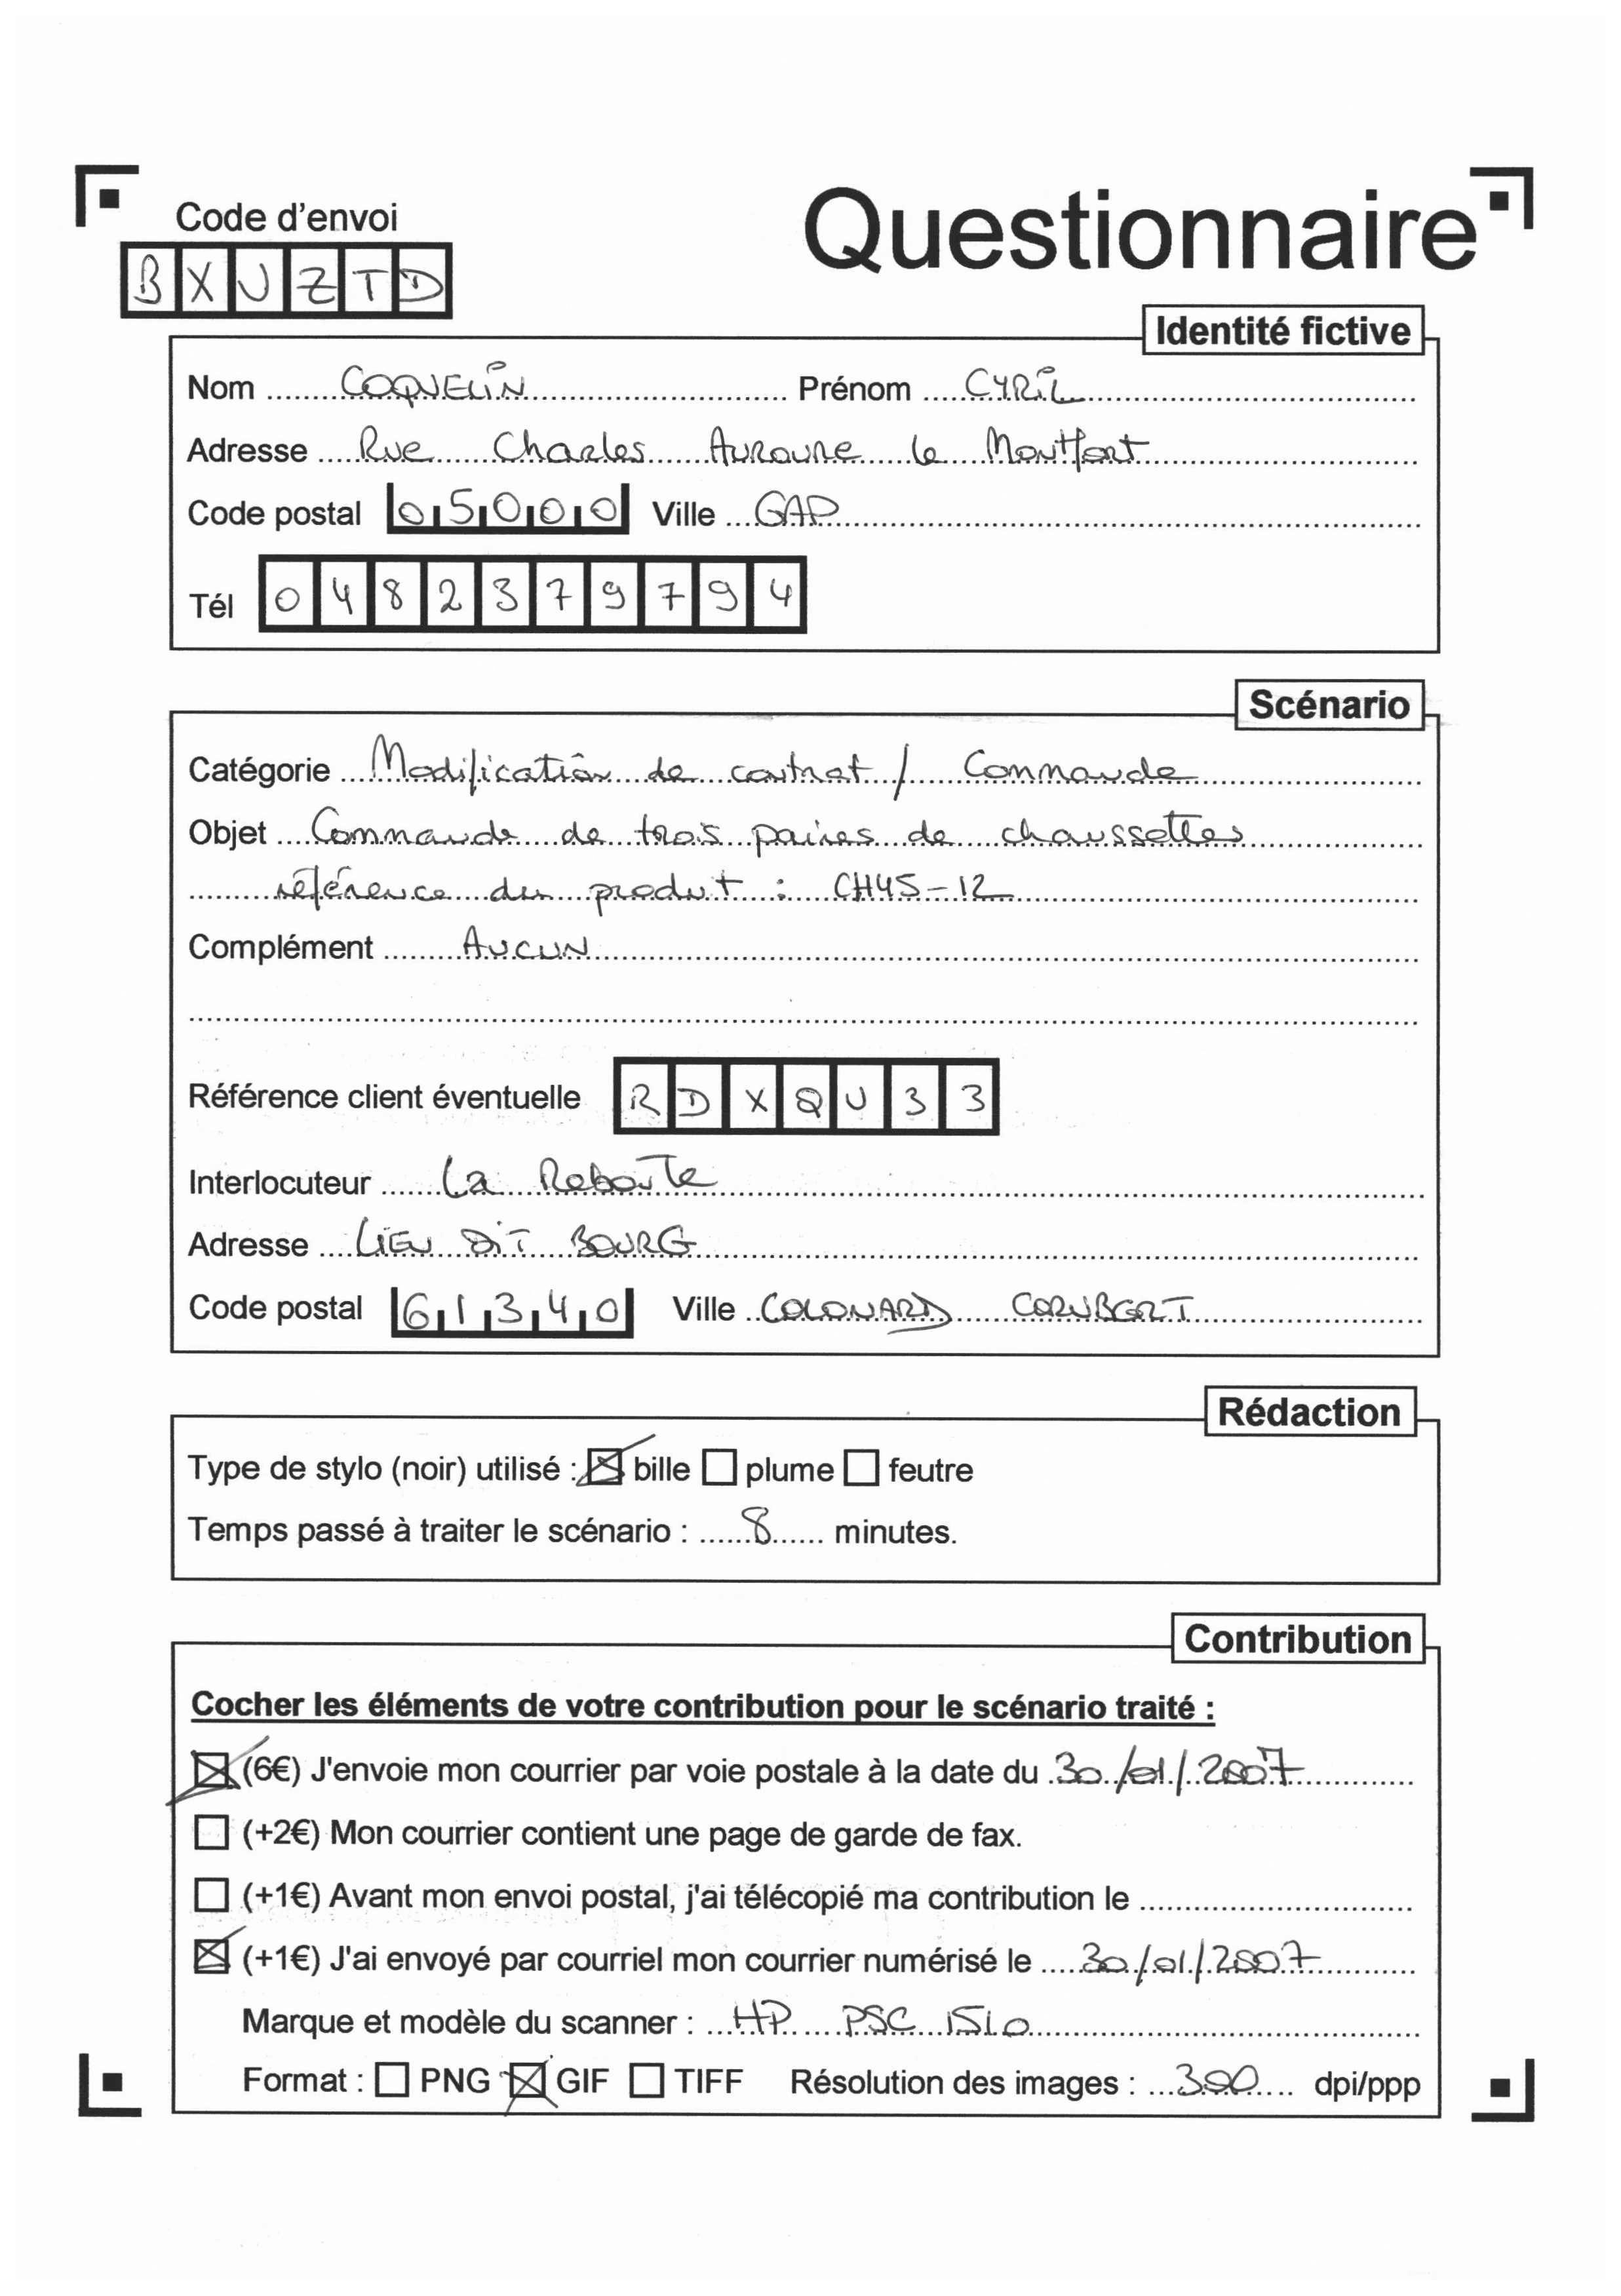 Questionnaire
Code d'envoi
BXUZTD
Identité fictive
Nom COQUELIN Prénom CYRIL
Adresse Rue Charles Auroune le Montfort
Code postal 05000 Ville GAP
Tél 0482379794
Scénario
Catégorie Modification de contrat / Commande
Objet Commande de trois paires de chaussettes
référence du produit : CH45-12
Complément AUCUN
Référence client éventuelle RDXQU33
Interlocuteur La Reboite
Adresse LIEU DIT BOURG
Code postal 61340 Ville COLONARD CORUBERT
Rédaction
Type de stylo (noir) utilisé : ☒ bille ☐ plume ☐ feutre
Temps passé à traiter le scénario : 8 minutes.
Contribution
Cocher les éléments de votre contribution pour le scénario traité :
☒ (6€) J'envoie mon courrier par voie postale à la date du 30/01/2007
☐ (+2€) Mon courrier contient une page de garde de fax.
☐ (+1€) Avant mon envoi postal, j'ai télécopié ma contribution le
☒ (+1€) J'ai envoyé par courriel mon courrier numérisé le 30/01/2007
Marque et modèle du scanner : HP PSC 1510
Format : ☐ PNG ☒ GIF ☐ TIFF Résolution des images : 300 dpi/ppp